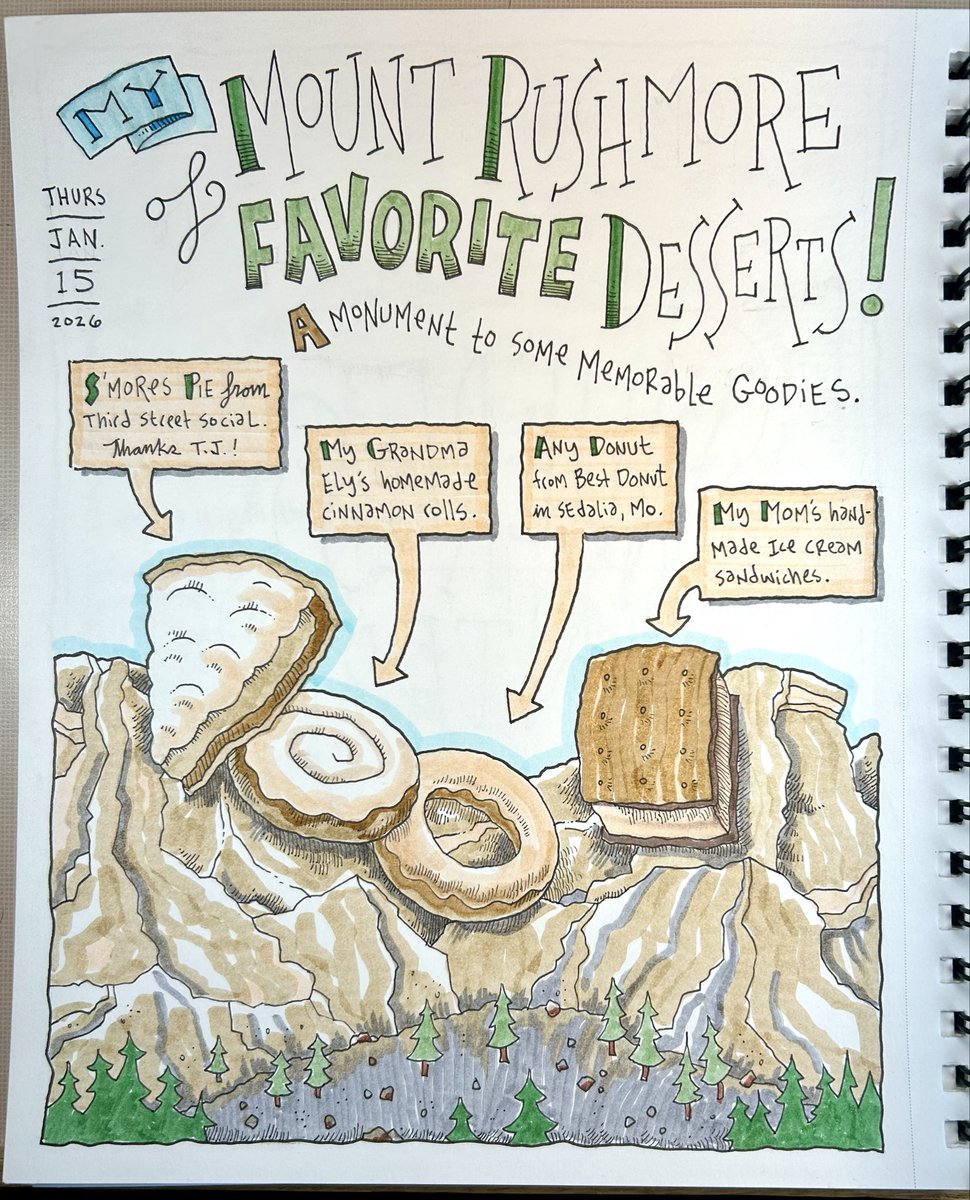 MY
MOUNT RUSHMORE
of FAVORITE DESSERTS!
A MONUMENT to SOME MEMORABLE GOODIES.
THURS
JAN.
15
2026
S'MORES PIE from
Third Street Social.
Thanks T.J.!
My GRANDMA
ELy's HOMEMADE
CINNAMON ROLLS.
ANy DONUT
from BEST DONUT
in SEdALIA, MO.
My MOM'S hAND-
MADE ICE CREAM
SANDWICHES.